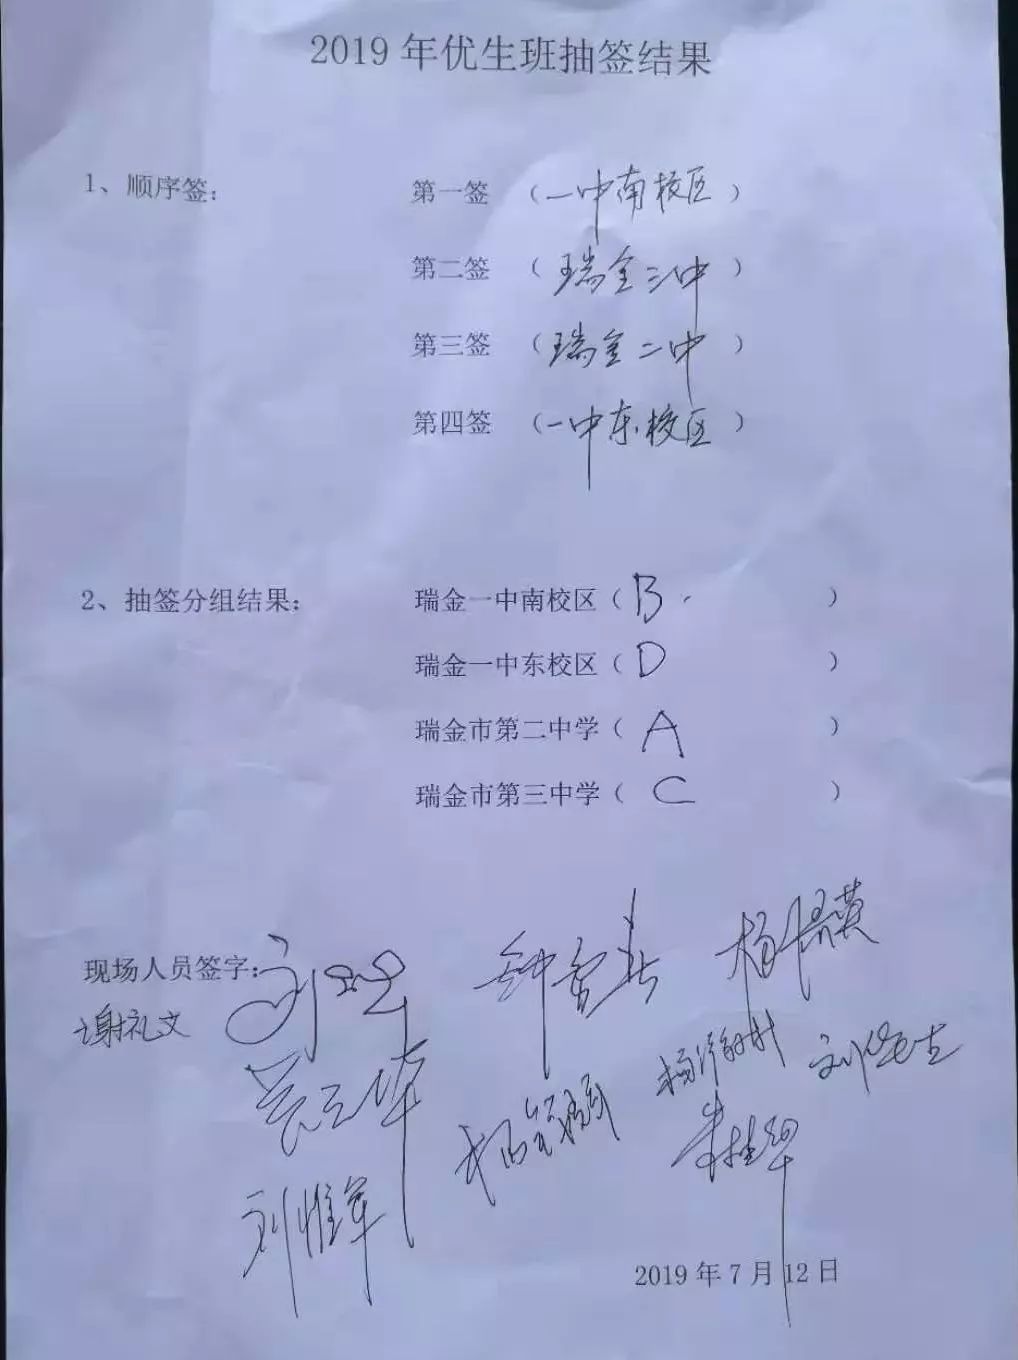 2019 年优生班抽签结果
1、顺序签： 第一签 （一中南校区）
第二签 （瑞金三中）
第三签 （瑞金二中）
第四签 （一中东校区）
2、抽签分组结果： 瑞金一中南校区（B）
瑞金一中东校区（D）
瑞金市第二中学（A）
瑞金市第三中学（C）
现场人员签字：
谢礼文
刘惟军
2019 年 7 月 12 日